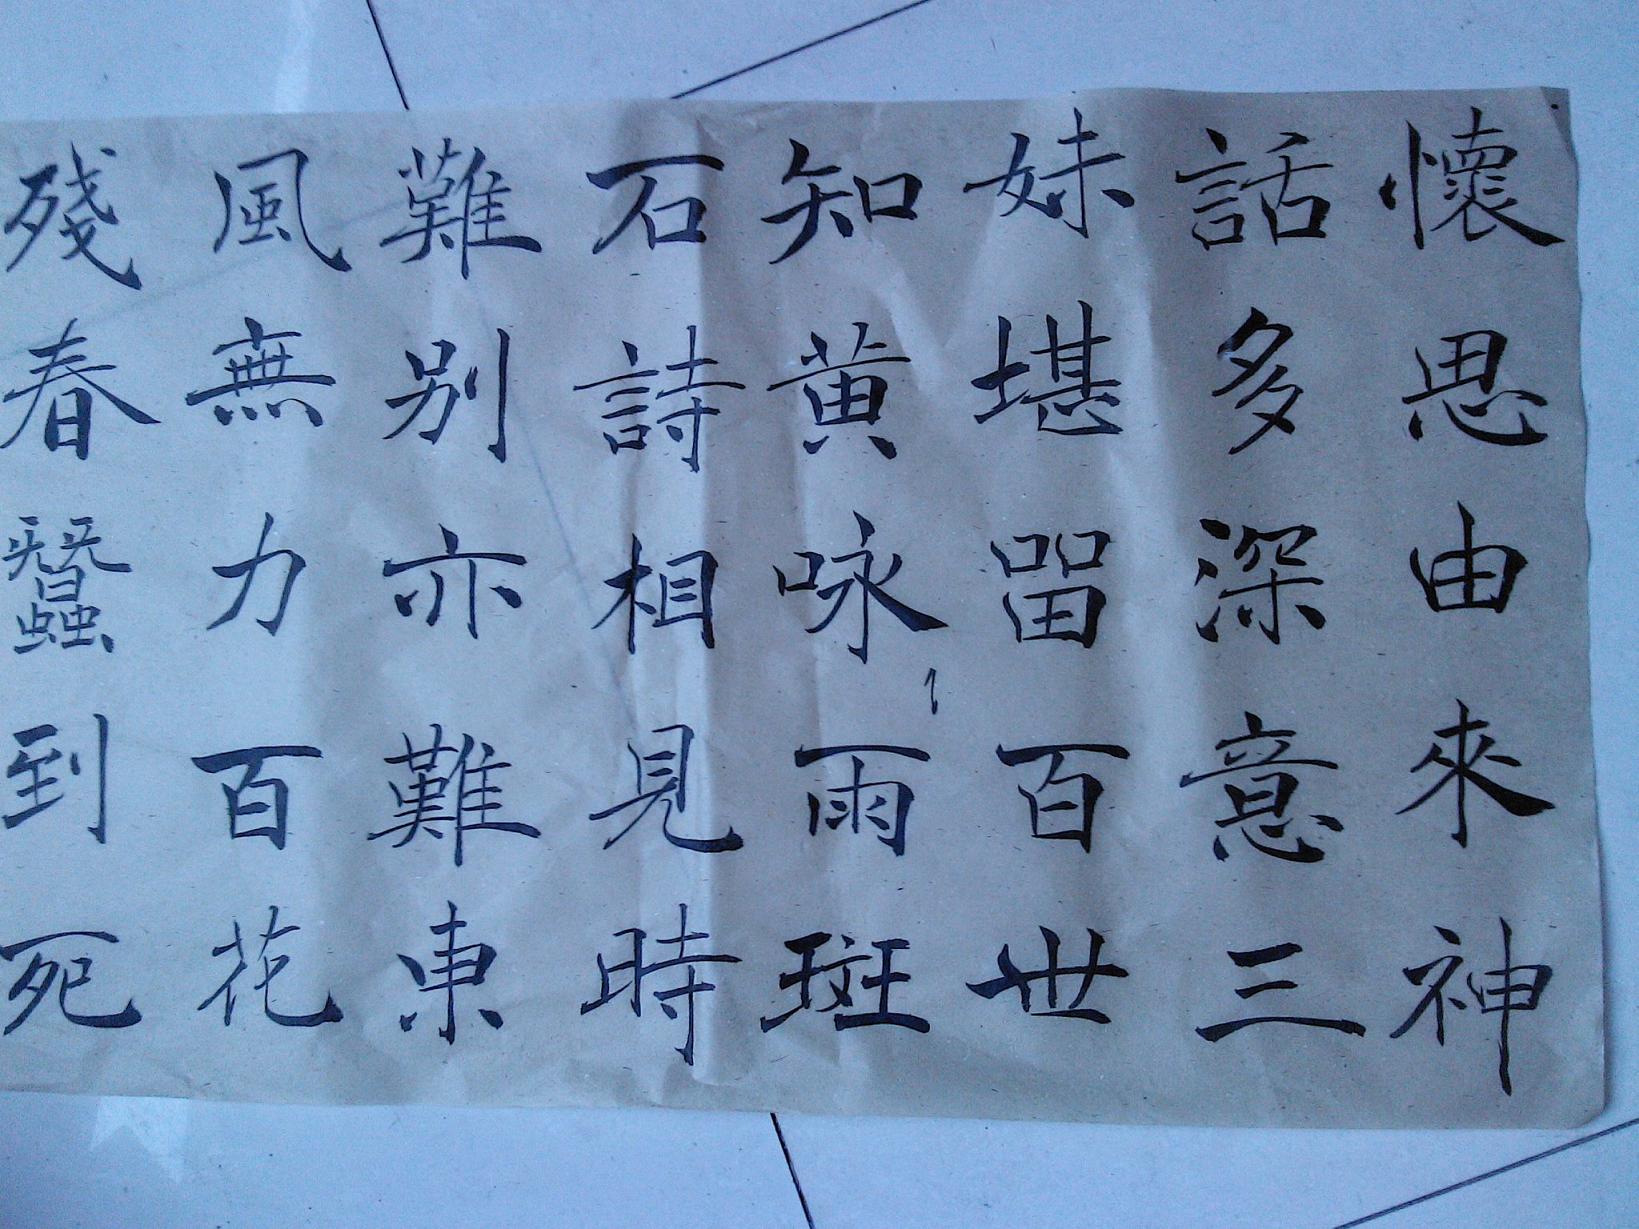 懷思由來神
話多深意三
妹堪畱百世
知黄咏雨斑
石詩相見時
難別亦難東
風無力百花
殘春蠶到死